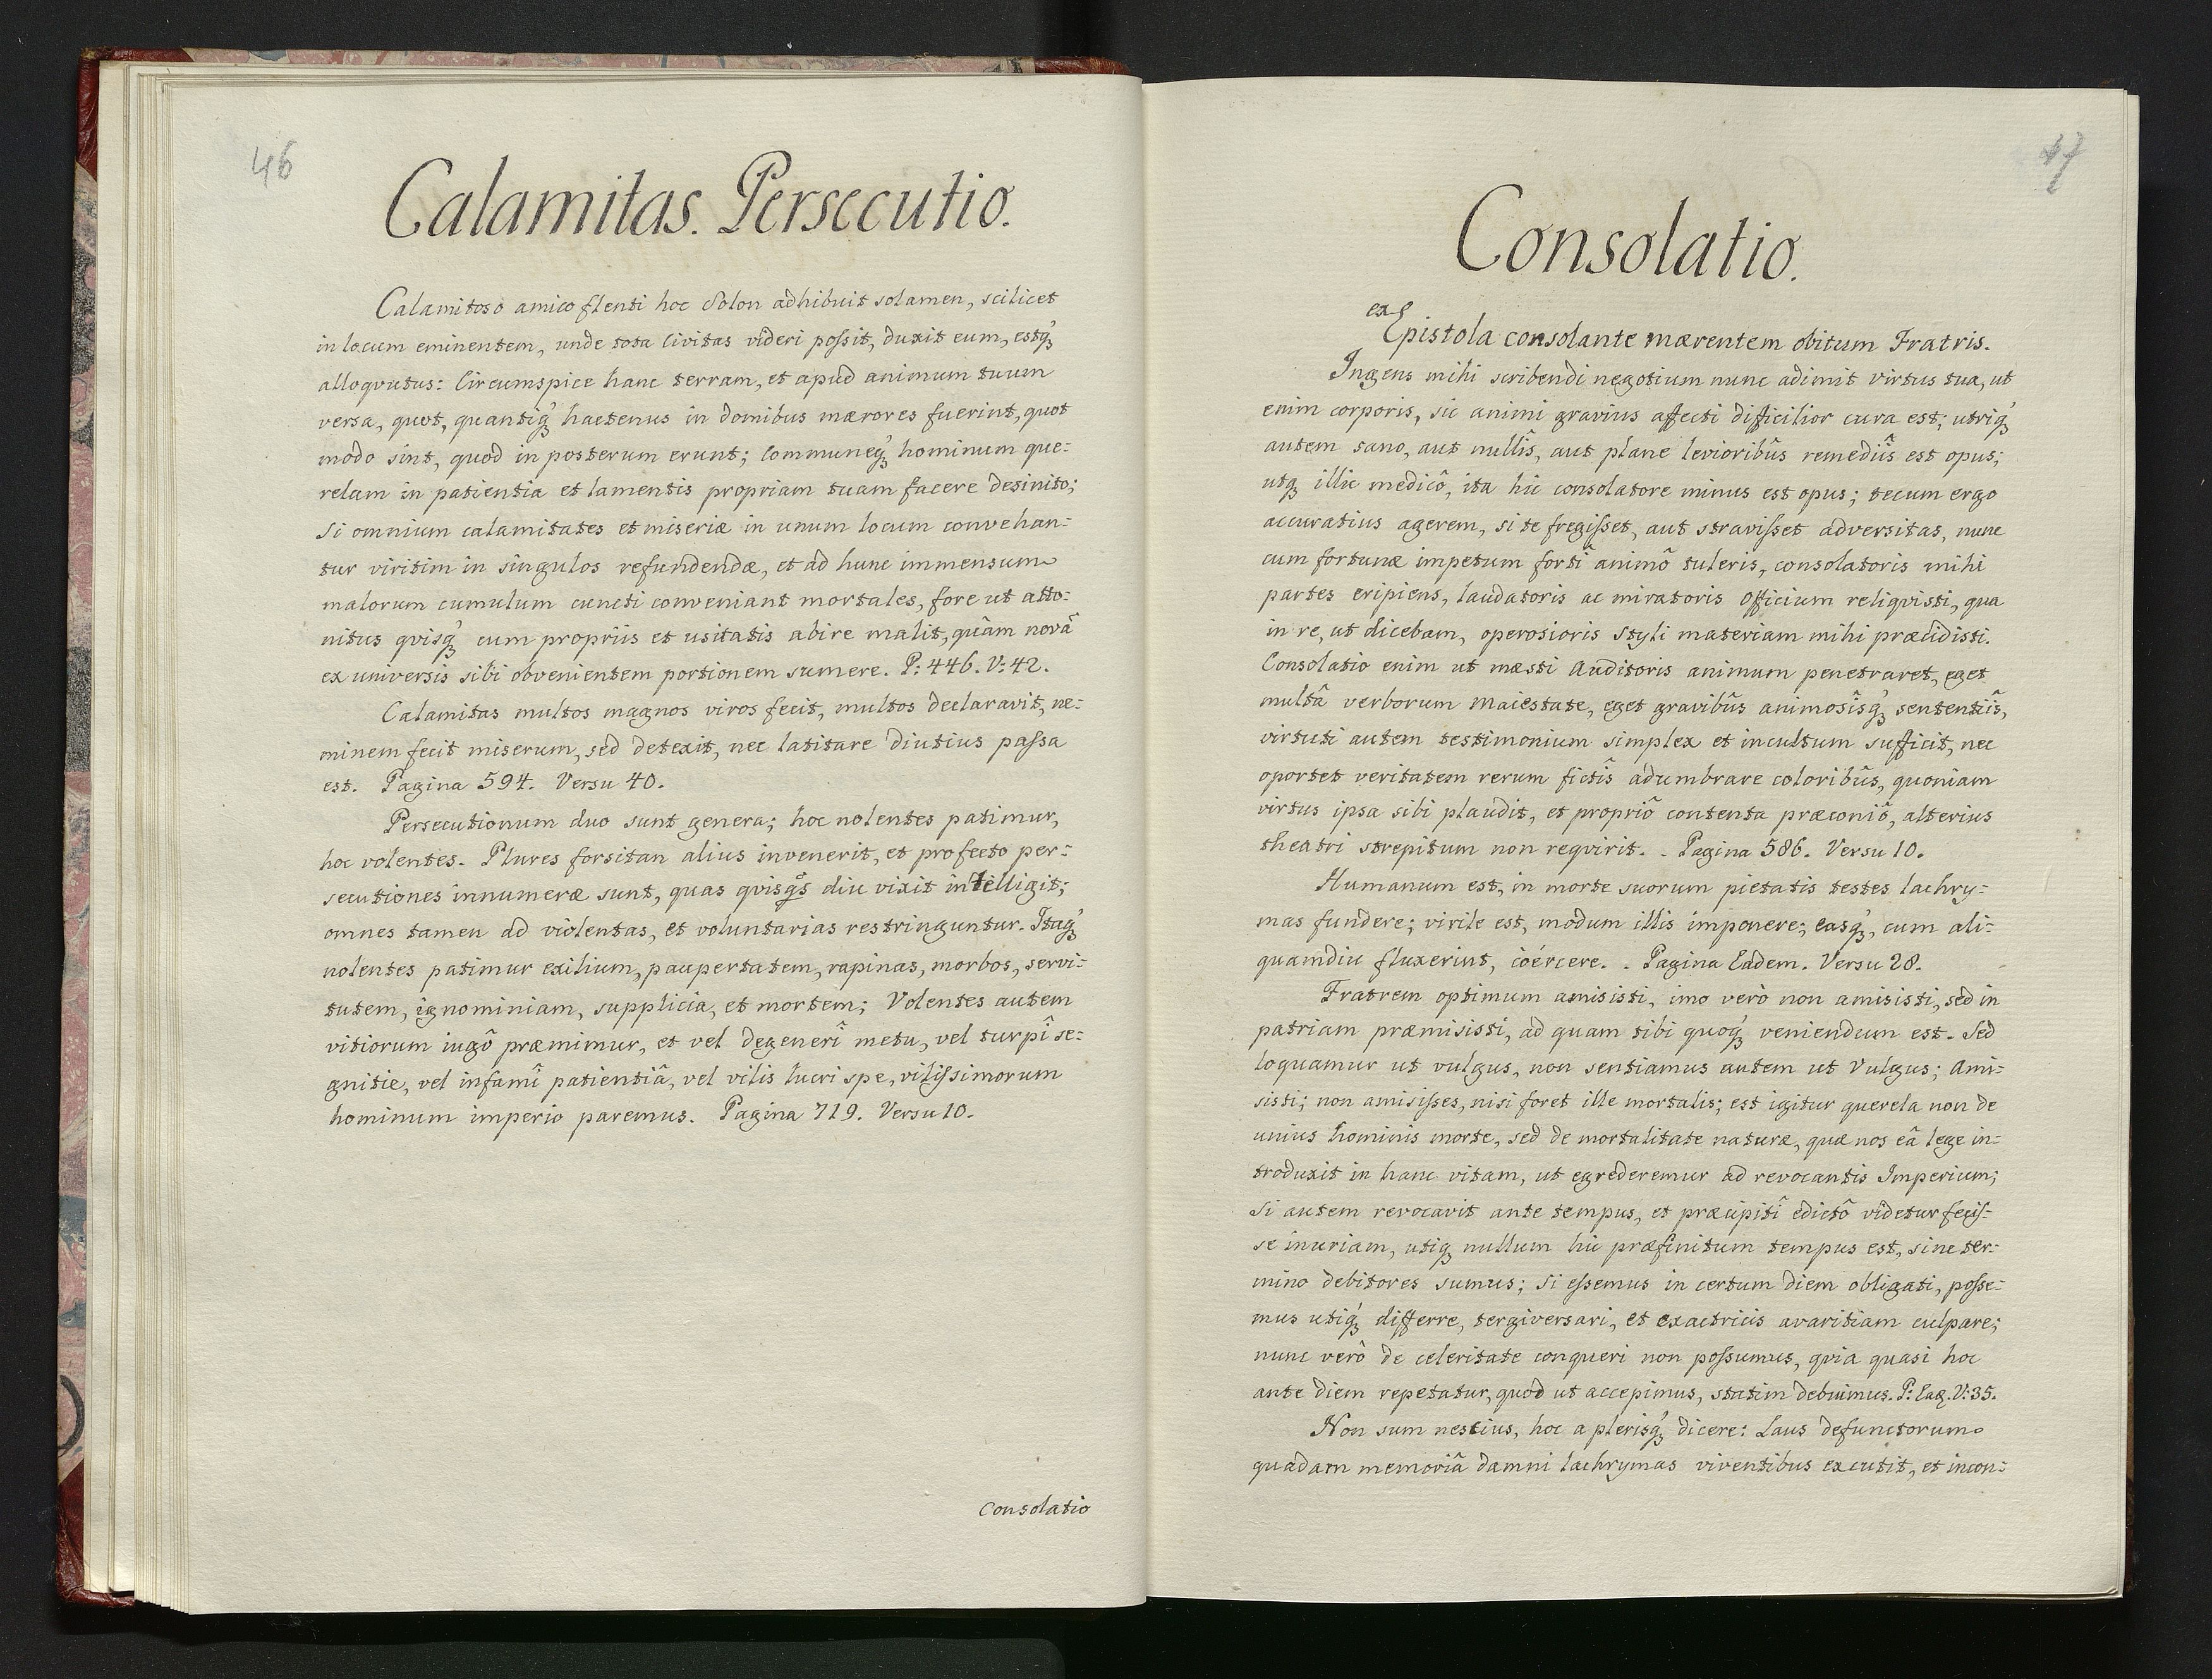 46
Calamitas. Persecutio.
Calamitoso amico flenti hoc Solon adhibuit solamen, scilicet
in locum eminentem, unde tota Civitas videri poſsit, duxit eum, estq́ꝫ
alloqvutus: Circumspice hanc terram, et apud animum tuum
versa, quot, quantiq́ꝫ hactenus in domibus mærores fuerint, quot
modo sint, quod in posterum erunt; Communeq́ꝫ hominum que:
relam in patientia et lamentis propriam tuam facere desinito;
Si omnium calamitates et miseriæ in unum locum convehan:
tur viritim in singulos refundendæ, et ad hunc immensum
malorum cumulum cuncti conveniant mortales, fore ut atto:
nitus qvisq́ꝫ cum propriis et usitatis abire malit, quàm novâ
ex universis sibi obvenientem portionem sumere. P: 446. V: 42.
Calamitas multos magnos viros fecit, multos declaravit, ne:
minem fecit miserum, sed detexit, nec latitare diutius paſsa
est. Pagina 594. Versu 40.
Persecutionum duo sunt genera; hoc nolentes patimur,
hoc volentes. Plures forsitan alius invenerit, et profecto per:
secutiones innumeræ sunt, quas qvisqs diu vixit intelligit;
omnes tamen ad violentas, et voluntarias restringuntur. Itaq́ꝫ
nolentes patimur exilium, paupertatem, rapinas, morbos, servi:
tutem, ignominiam, supplicia, et mortem; Volentes autem
vitiorum iugô præmimur, et vel degenerî metu, vel turpî se:
gnitie, vel infamî patientiâ, vel vilis lucri spe, viliſsimorum
hominum imperio paremus. Pagina 719. Versu 10.
Consolatio
47
Consolatio.
ex
Epistola consolante mærentem obitum Fratris.
Ingens mihi scribendi negotium nunc adimit virtus tua, ut
enim corporis, sic animi gravius affecti difficilior cura est; utriq́ꝫ
autem sano, aut nullîs, aut plane levioribûs remediîs est opus;
utqꝫ illic medicô, ita hic consolatore minus est opus; tecum ergo
accuratius agerem, si te fregiſset, aut straviſset adversitas, nunc
cum fortunæ impetum fortî animô tuleris, consolatoris mihi
partes eripiens, laudatoris ac miratoris officium reliqvisti, qua
in re, ut dicebam, operosioris styli materiam mihi præcidisti.
Consolatio enim ut mæsti Auditoris animum penetraret, eget
multâ verborum maiestate, eget gravibûs animosîsq́ꝫ sententiîs,
virtuti autem testimonium simplex et incultum sufficit, nec
oportet veritatem rerum fictîs adumbrare coloribûs, quoniam
virtus ipsa sibi plaudit, et propriô contenta præconiô, alterius
theatri strepitum non reqvirit. . Pagina 586. Versu 10.
Humanum est, in morte suorum pietatis testes lachry:
mas fundere; virile est, modum illis imponere; easq́ꝫ, cum ali:
quamdiu fluxerint, coércere. . Pagina Eadem. Versu 28.
Fratrem optimum amisisti, imo verò non amisisti, sed in
patriam præmisisti, ad quam tibi quoq́ꝫ veniendum est. Sed
loquamur ut vulgus, non sentiamus autem ut Vulgus; Ami:
sisti; non amisiſses, nisi foret ille mortalis; est igitur querela non de
unius hominis morte, sed de mortalitate naturæ, quæ nos eâ lege in:
troduxit in hanc vitam, ut egrederemur ad revocantis Imperium;
Si autem revocavit ante tempus, et præcipitî edictô videtur feciſ:
se iniuriam, utiqꝫ nullum hic præfinitum tempus est, sine ter:
mino debitores sumus; Si eſsemus in certum diem obligati, poſse:
mus utiq́ꝫ differre, tergiversari, et exactricis avaritiam culpare;
nunc verò de celeritate conqueri non poſsumus, qvia quasi hoc
ante diem repetatur, quod ut accepimus, statim debuimus. P: Eaq. V: 35.
Non sum nescius, hoc a plerisq́ꝫ dicere: Laus defunctorum
quadam memoriâ damni lachrymas viventibus excutit, et incon: